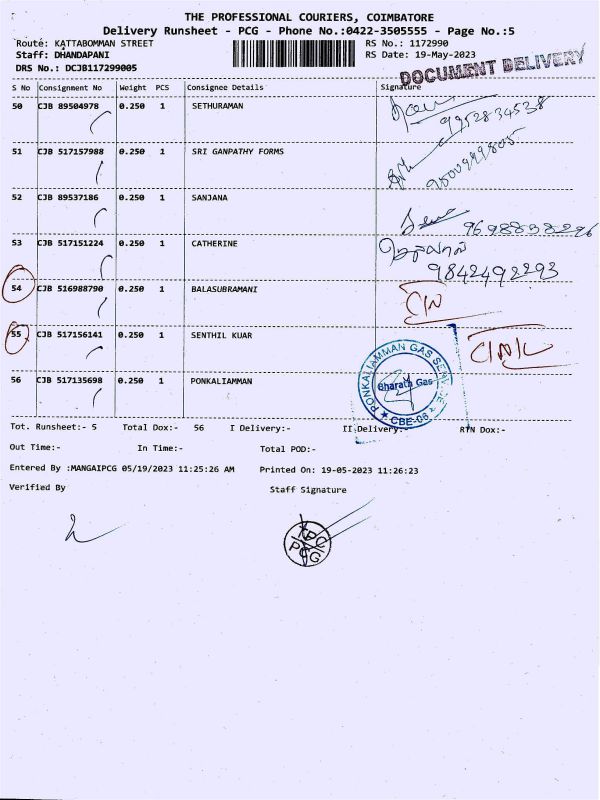 THE PROFESSIONAL COURIERS, COIMBATORE
Delivery Runsheet - PCG - Phone No.:0422-3505555 - Page No.:5
Route: KATTABOMMAN STREET RS No.: 1172990
Staff: DHANDAPANI RS Date: 19-May-2023
DRS No.: DCJB117299005
DOCUMENT DELIVERY
S No Consignment No Weight PCS Consignee Details Signature
50 CJB 89504978 0.250 1 SETHURAMAN
9952834538
51 CJB 517157988 0.250 1 SRI GANPATHY FORMS
52 CJB 89537186 0.250 1 SANJANA
53 CJB 517151224 0.250 1 CATHERINE
9842492293
54 CJB 516988790 0.250 1 BALASUBRAMANI
55 CJB 517156141 0.250 1 SENTHIL KUAR
56 CJB 517135698 0.250 1 PONKALIAMMAN
PONKALIAMMAN GAS SERVICE
Bharath Gas
CBE-06
Tot. Runsheet:- 5 Total Dox:- 56 I Delivery:- II Delivery:- RTN Dox:-
Out Time:- In Time:- Total POD:-
Entered By :MANGAIPCG 05/19/2023 11:25:26 AM Printed On: 19-05-2023 11:26:23
Verified By Staff Signature